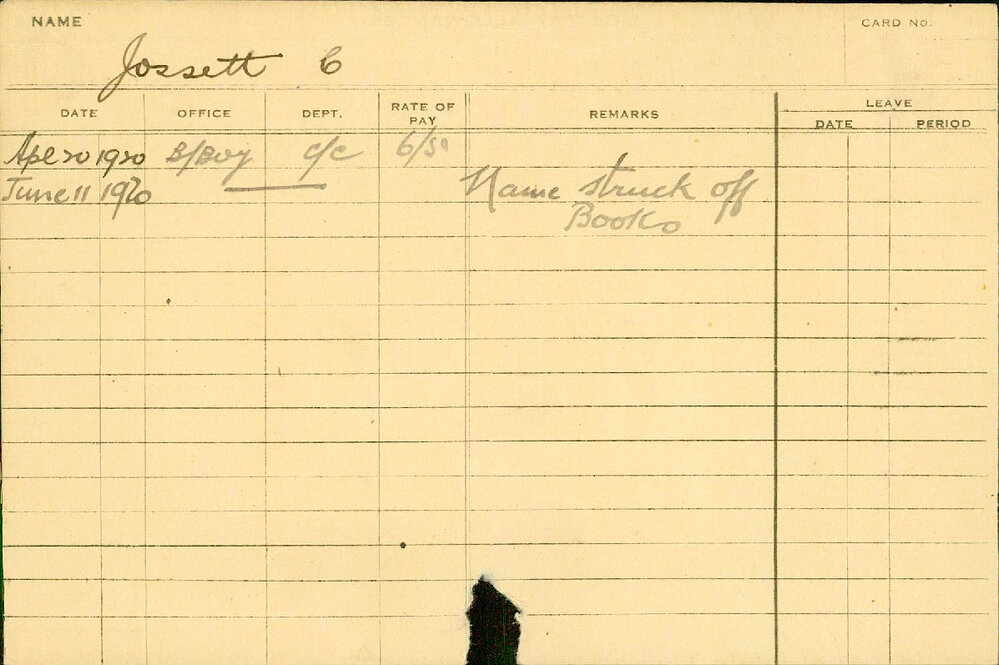 NAME
CARD No.
Jossett C
DATE OFFICE DEPT. RATE OF PAY REMARKS LEAVE
DATE PERIOD
Apl 20 1920 B/Boy C/C 6/50
June 11 1920 Name struck off
Books